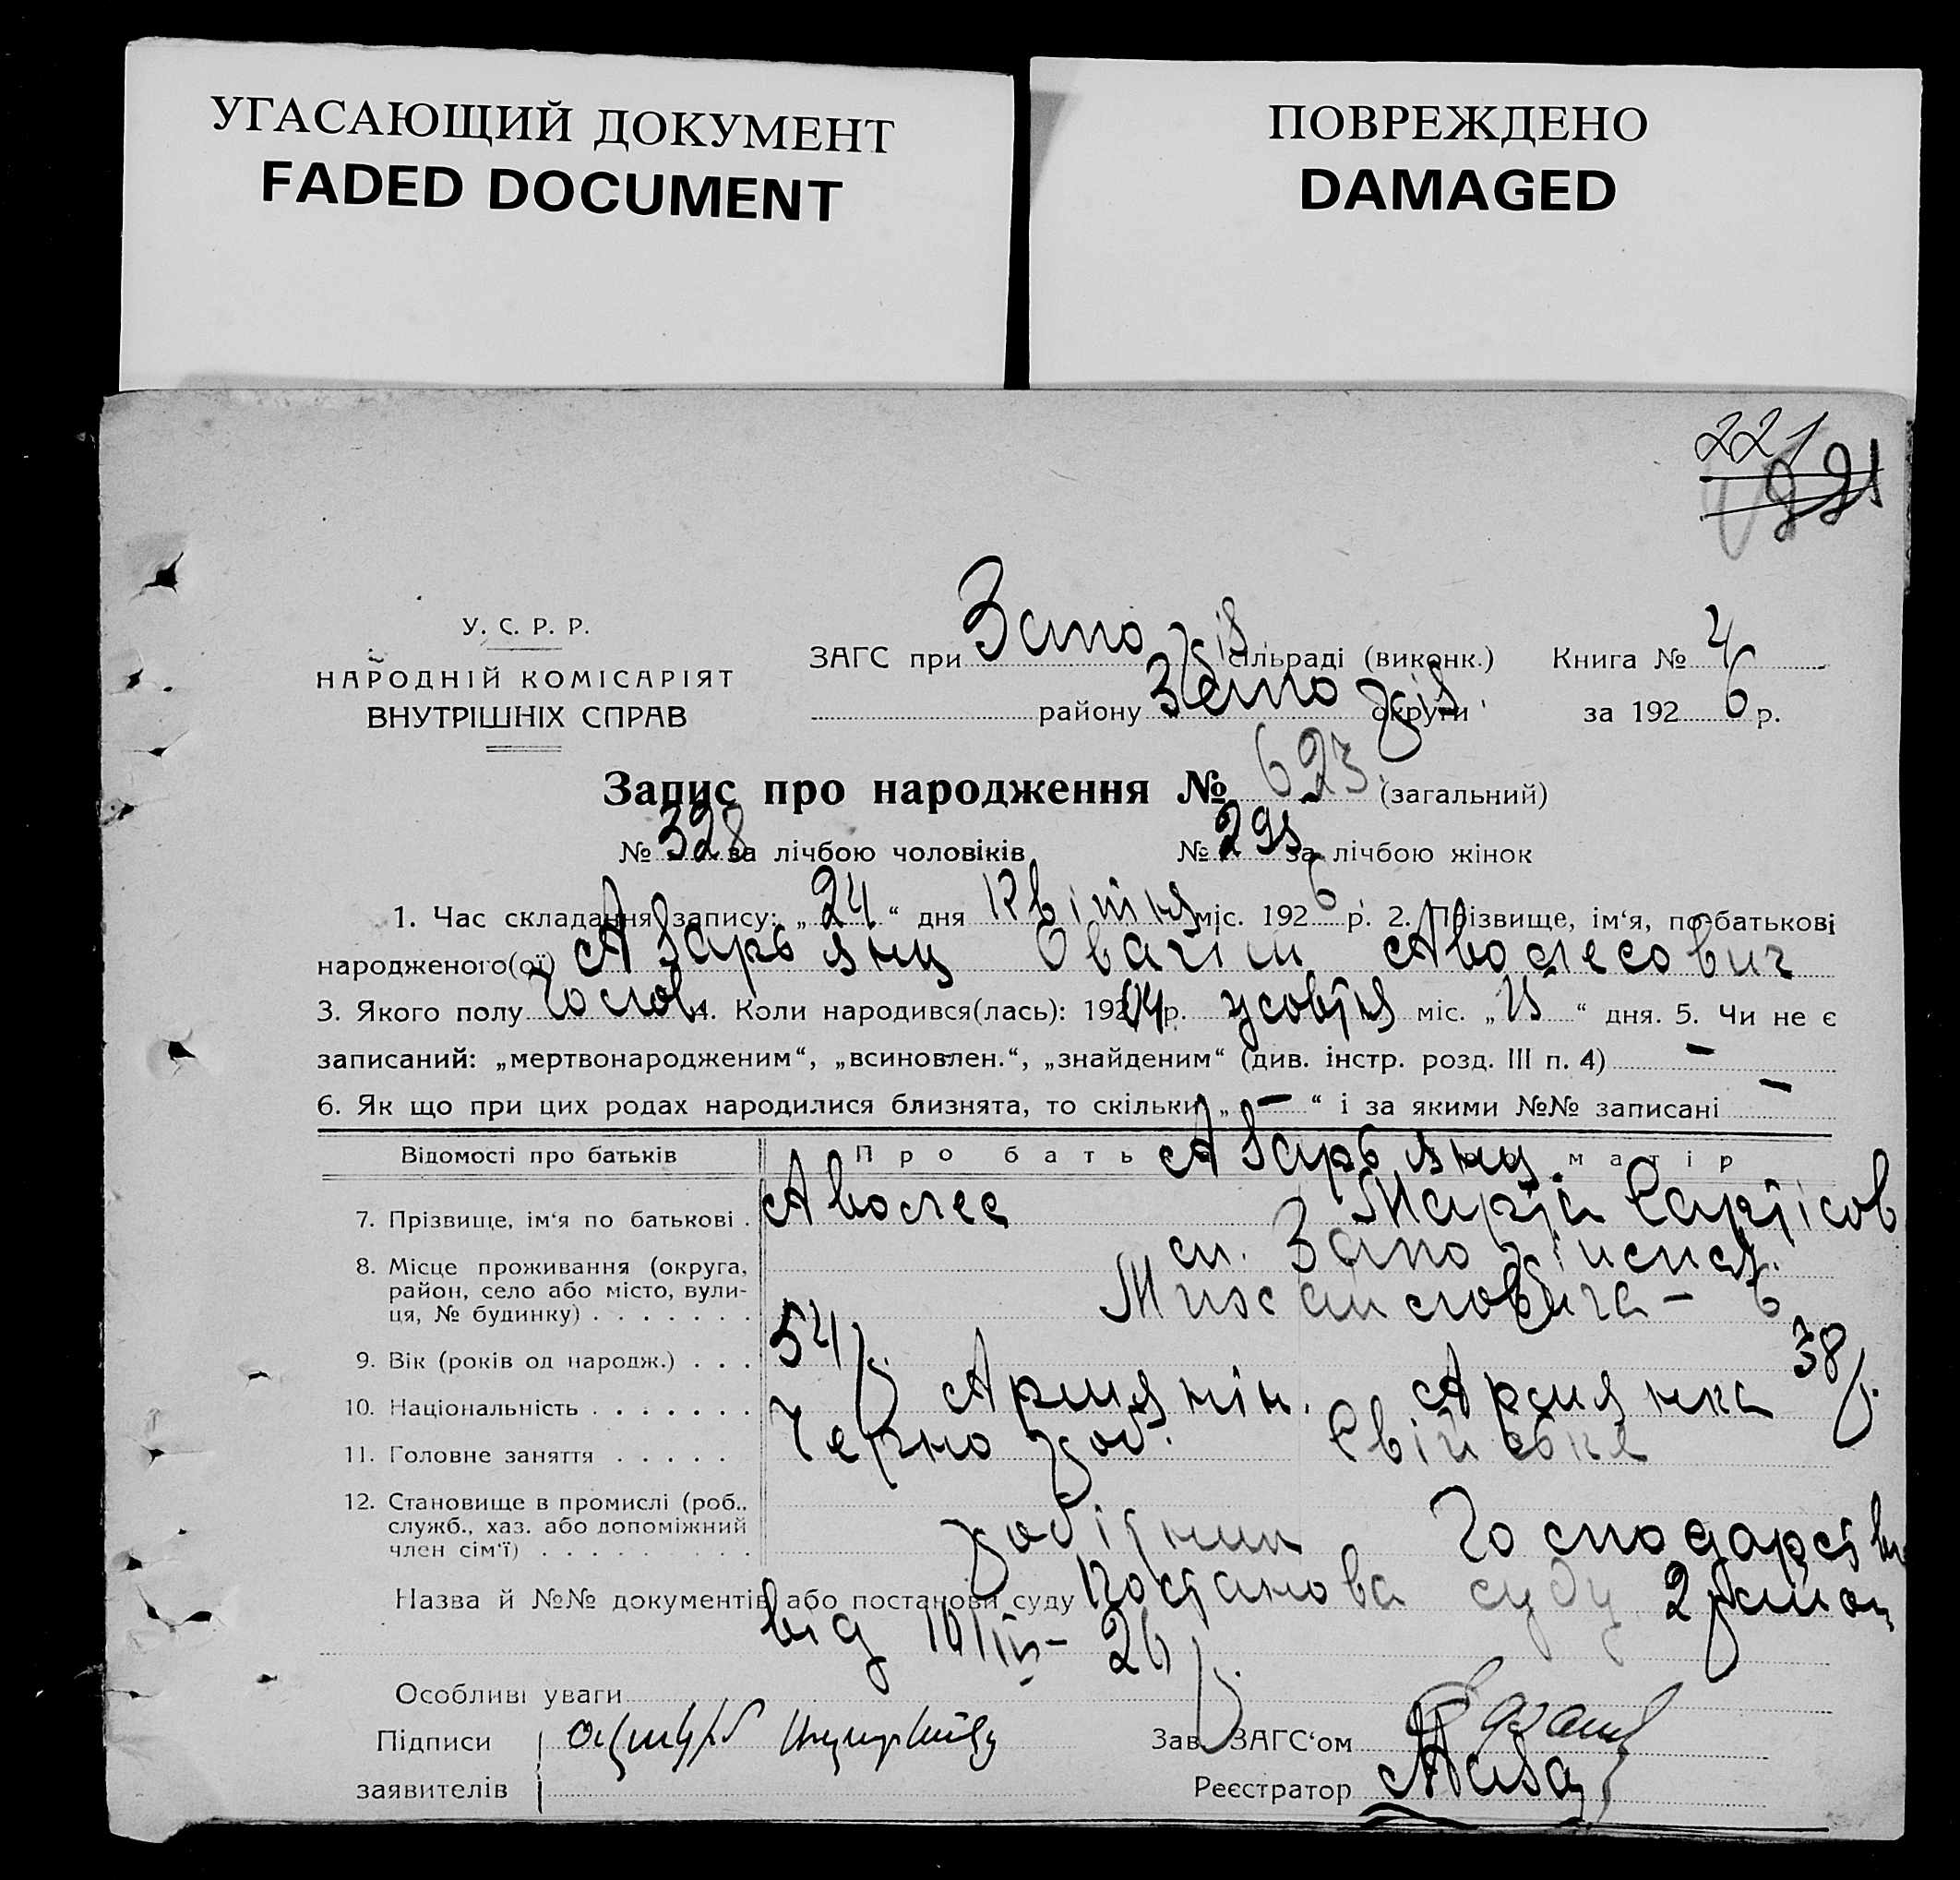 УГАСАЮЩИЙ ДОКУМЕНТ
FADED DOCUMENT
ПОВРЕЖДЕНО
DAMAGED
221
У. С. Р. Р.
НАРОДНІЙ КОМІСАРІЯТ
ВНУТРІШНІХ СПРАВ
ЗАГС при Запоріз сільраді (виконк.) Книга № 4
району Запоріз округи за 1926 р.
Запис про народження № 623 (загальний)
№ 328 за лічбою чоловіків № 295 за лічбою жінок
1. Час складання запису: „24“ дня Квітня міс. 1926 р. 2. Прізвище, ім‘я, по батькові
народженого(ої) Азарьянц Овагім Авослесович
3. Якого полу Чолов. 4. Коли народився(лась): 1904 р. жовтня міс. „15“ дня. 5. Чи не є
записаний: „мертвонародженим“, „всиновлен.“, „знайденим“ (див. інстр. розд. III п. 4) —
6. Як що при цих родах народилися близнята, то скільки „—“ і за якими №№ записані —
Відомості про батьків Про бать матір
Азарьянц
7. Прізвище, ім‘я по батькові . Авослес Марія Саркісов
8. Місце проживання (округа, район, село або місто, вулиця, № будинку) . . . . . . . м. Запоріжжя
Михайловича - 6
9. Вік (років од народж.) . . . 54 р. 38 р.
10. Національність . . . . . . . Армянін. Армянка
11. Головне заняття . . . . . Чернороб. Свійське
12. Становище в промислі (роб., служб., хаз. або допоміжний член сім‘ї) . . . . . . . . . робітник Господарство
Назва й №№ документів або постанови суду Постанова суду 2 район
від 10/III - 26 р.
Особливі уваги
Підписи
заявителів
Зав. ЗАГС‘ом
Реєстратор